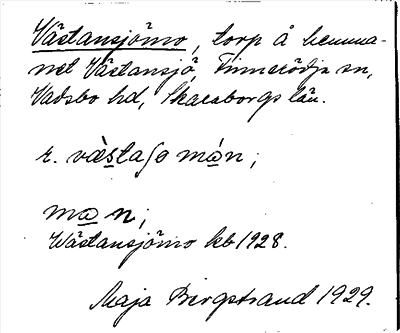 Västansjömo, torp å hemma-
net Västansjö, Finnerödja sn,
Vadsbo hd, Skaraborgs län.
r. västaʃo män;
man;
Västansjömo kb 1928.
Maja Bergstrand 1929.